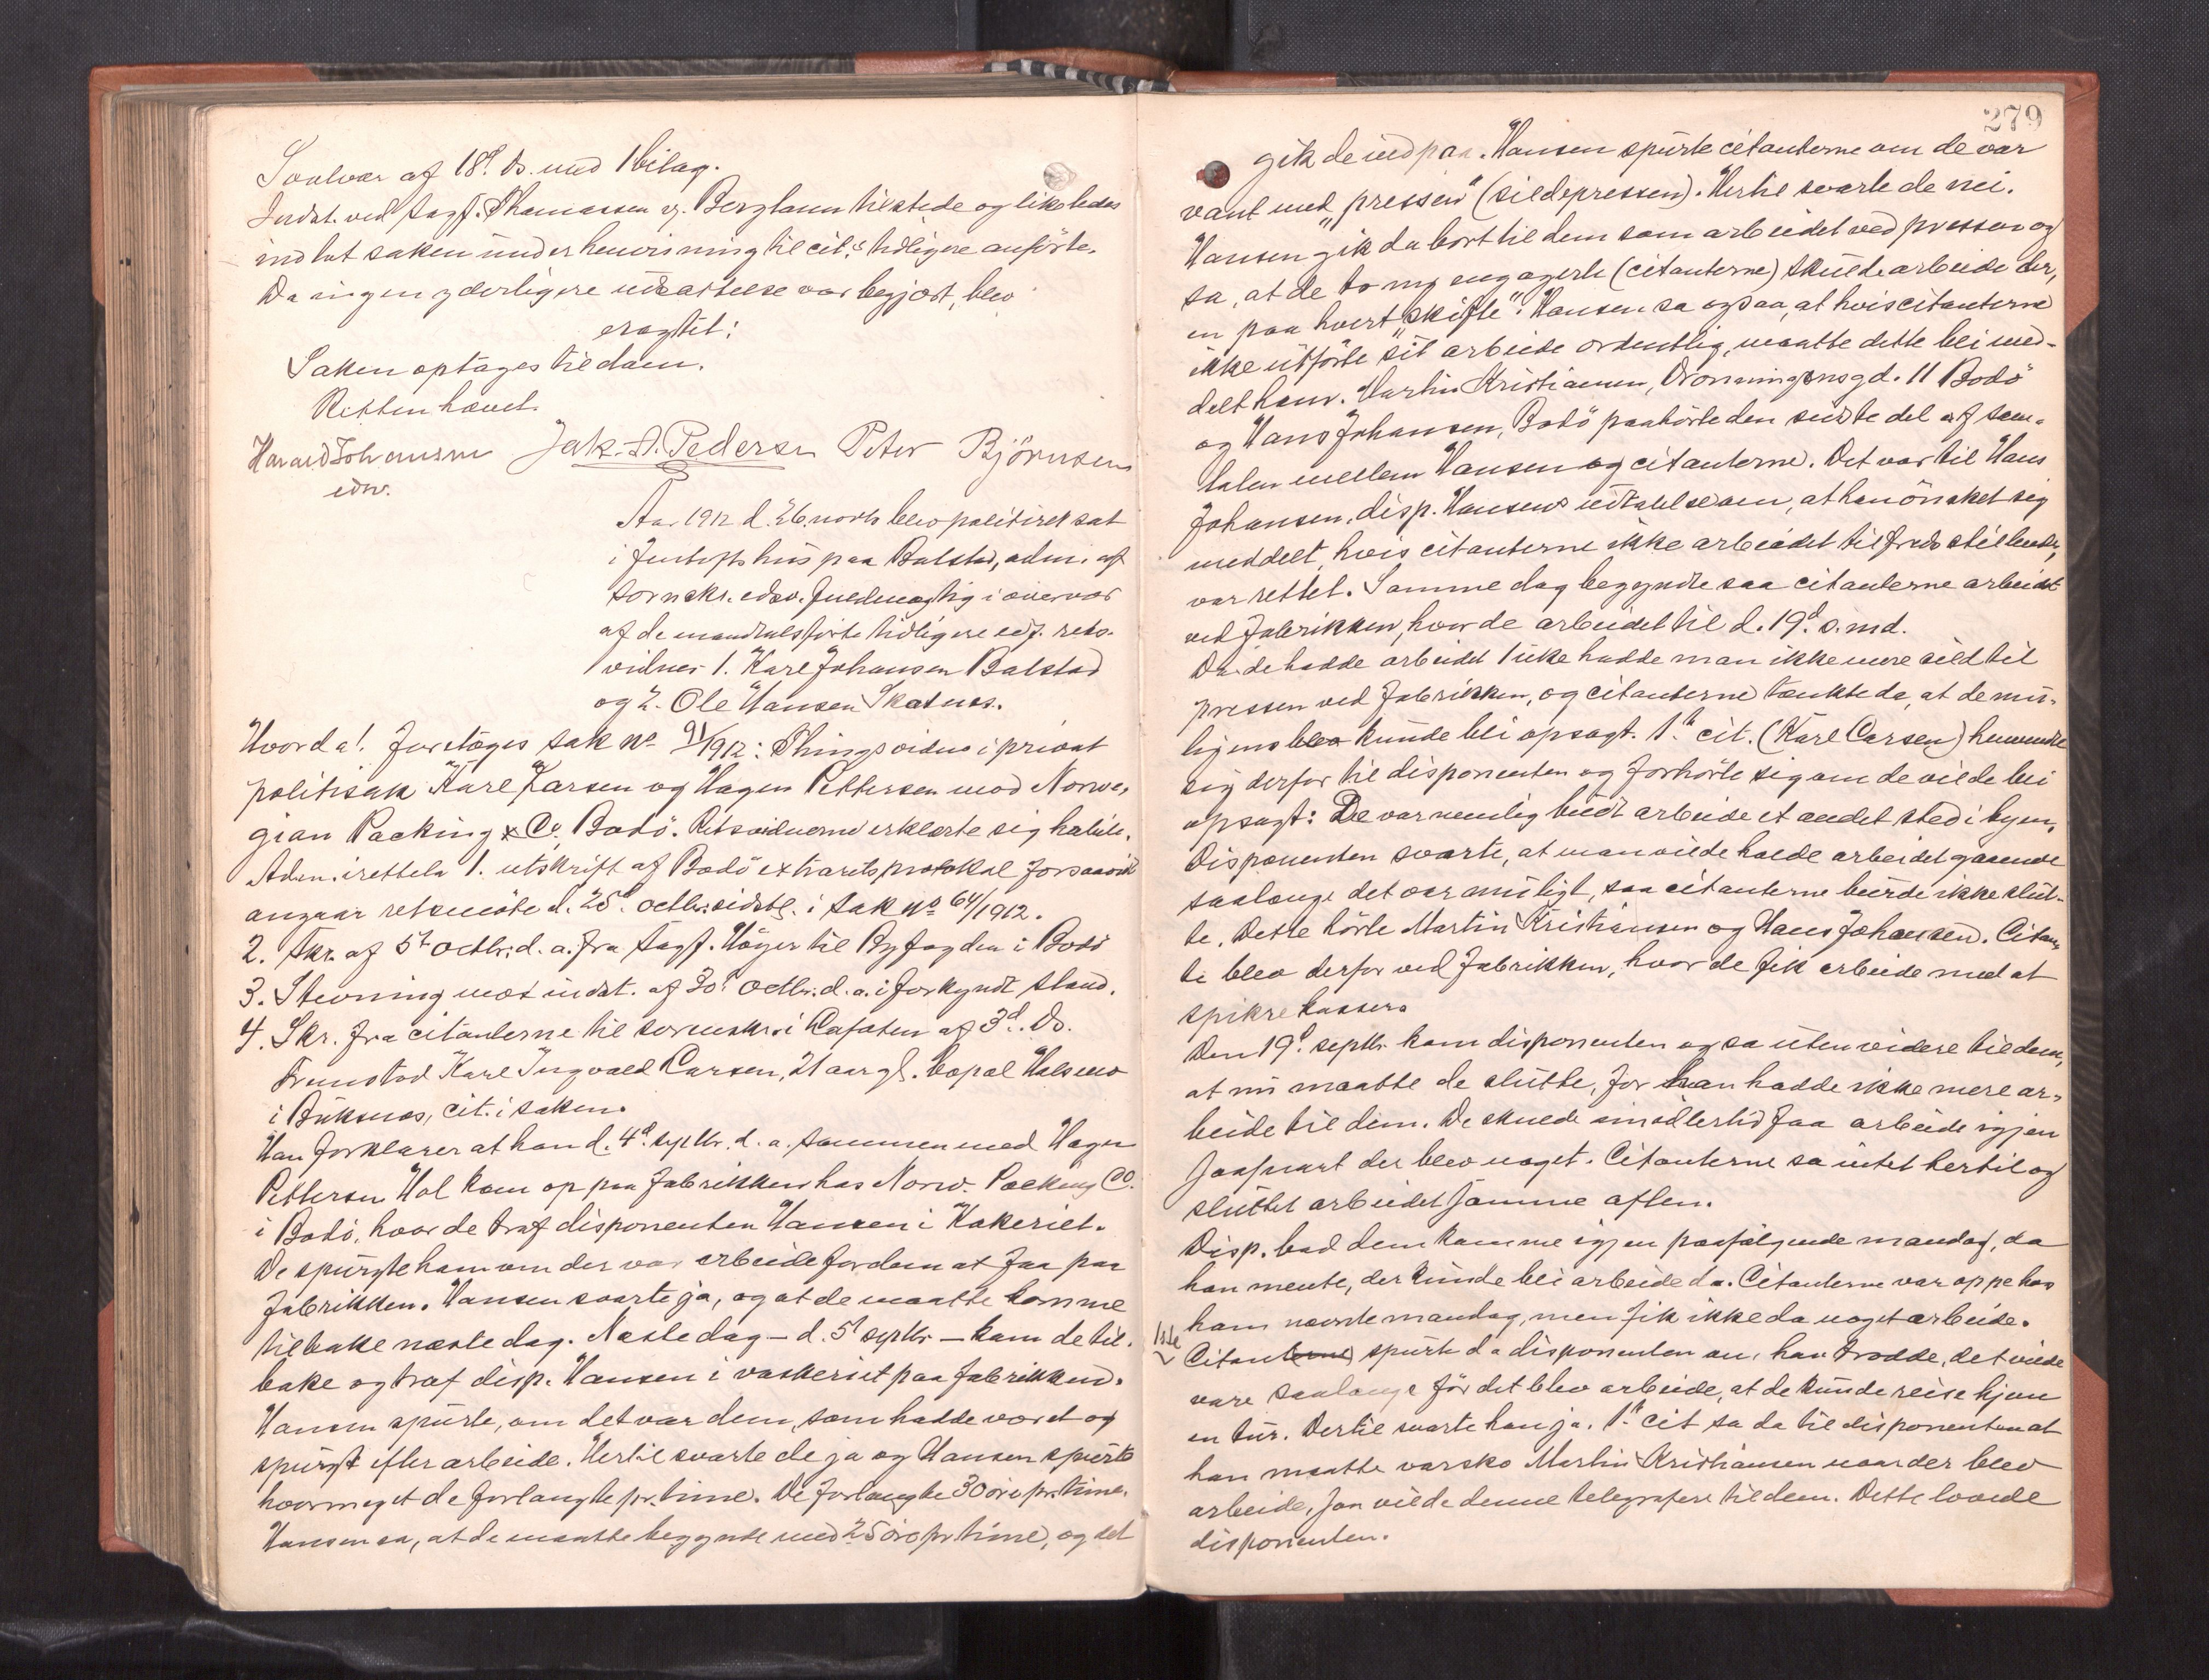 Svolvær af 18d. Ds. med 1 bilag.
Indst. ved sagf. Thomassen v. Berglann tilstede og likeledes
indlot saken under henvisning til cit.s tidligere anførte.
Da ingen yderligere utsættelse var begjært, blev
eragtet:
Saken optages til dom.
Retten hævet.
Harald Johansen Jak. A. Pedersen Peter Björnsen
edsv.
Aar 1912 d. 26. novb. blev politiret sat
i Jentofts hus paa Balstad, adm. af
sornskr. edsv. fuldmægtig i overvær
af de mandtalsførte tidligere edf. rets-
vidner 1. Karl Johansen Balstad
og 2. Ole Hansen Skotnes.
Hvorda! Foretages sak No 91/1912: Thingsvidne i privat
politisak Karl Larsen og Hagen Pettersen mod Norwe-
gian Packing & Co. Bodö. Retsvidnerne erklærte sig habile.
Adm. irettela 1. utskrift af Bodö extraretsprotokol forsaavidt
angaar retsmöte d. 25d. octbr. sidstl. i sak No 64/1912.
2. Skr. af 5t octbr. d. a. fra sagf. Höyer til Byfogden i Bodö
3. Stevning mot indst. af 30. octbr. d. a. i forkyndt stand.
4. Skr. fra citanterne til sorenskr. i Lofoten af 3d. Ds.
Fremstod Karl Ingvald Larsen, 21 aar gl. bopæl Halsmo
i Buksnes, cit. i saken.
Han forklarer at han d. 4d. septbr. d. a. sammen med Hagen
Pettersen Hol kom op paa fabrikken hos Norw. Packing Co.
i Bodö, hvor de traf disponenten Hansen i Kokeriet.
De spurgte ham om der var arbeide for dem at faa paa
fabrikken. Hansen svarte ja, og at de maatte komme
tilbake næste dag. Næste dag – d. 5t septbr – kom de til-
bake og traf disp. Hansen i vaskeriet paa fabrikken.
Hansen spurte, om det var dem, som hadde været og
spurgt efter arbeide. Hertil svarte de ja og Hansen spurte
hvormeget de forlangte pr. time. De forlangte 30 öre pr. time.
Hansen sa, at de maatte begynde med 25 öre pr time, og det
279
gik de ind paa. Hansen spurte citanterne om de var
vant med „pressen" (sildepressen). Hertil svarte de nei.
Hansen gik da bort til dem som arbeidet ved pressen og
sa, at de to ny engagerte (citanterne) skulde arbeide der,
en paa hvert „skifte". Hansen sa ogsaa, at hvis citanterne
ikke utförte sit arbeide ordentlig, maatte dette bli med-
delt ham. Martin Kristiansen, Dronningensgd. 11 Bodö
og Hans Johansen, Bodö paahörte den sidste del af sam-
talen mellem Hansen og citanterne. Det var til Hans
Johansen, disp. Hansens udtalelse om, at han önsket sig
meddelt, hvis citanterne ikke arbeidet tilfredsstillende,
var rettet. Samme dag begyndte saa citanterne arbeidet
ved fabrikken, hvor de arbeidet til d. 19d. s. md.
Da de hadde arbeidet 1 uke hadde man ikke mere sild til
pressen ved fabrikken, og citanterne tænkte da, at de mu-
ligens blev kunde bli opsagt. 1st cit. (Karl Larsen) henvendte
sig derfor til disponenten og forhörte sig om de vilde bli
opsagt: De var nemlig budt arbeide et andet sted i byen.
Disponenten svarte, at man vilde holde arbeidet gaaende
saalænge det var muligt, saa citanterne burde ikke slut-
te. Dette hörte Martin Kristiansen og Hans Johansen. Citan-
te blev derfor ved fabrikken, hvor de fik arbeide med at
spikre kasser.
Den 19d. septbr. kom disponenten og sa uten videre til dem,
at nu maatte de slutte, for han hadde ikke mere ar-
beide til dem. De skulde imidlertid faa arbeide igjen
saasnart der blev noget. Citanterne sa intet hertil og
sluttet arbeidet samme aften.
Disp. bad dem komme igjen paafølgende mandag, da
han mente, der kunde bli arbeide da. Citanterne var oppe hos
ham nævnte mandag, men fik ikke da noget arbeide.
1ste
Citanterne spurte da disponenten om, han trodde, det vilde
vare saalænge för det blev arbeide, at de kunde reise hjem
en tur. Dertil svarte han ja. 1st cit sa da til disponenten at
han maatte varsko Martin Kristiansen naar der blev
arbeide, saa vilde denne telegrafere til dem. Dette lovede
disponenten.